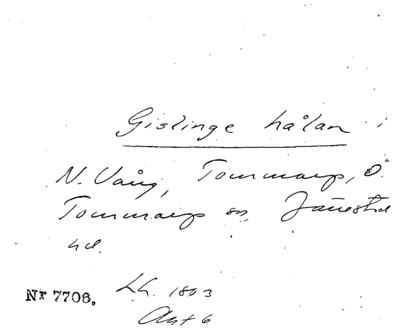 Gislinge hålan i
N. Vång, Tommarp, Ö.
Tommarp sn, Järrestad
hd.
Nr 7706. LA. 1803
Akt 6